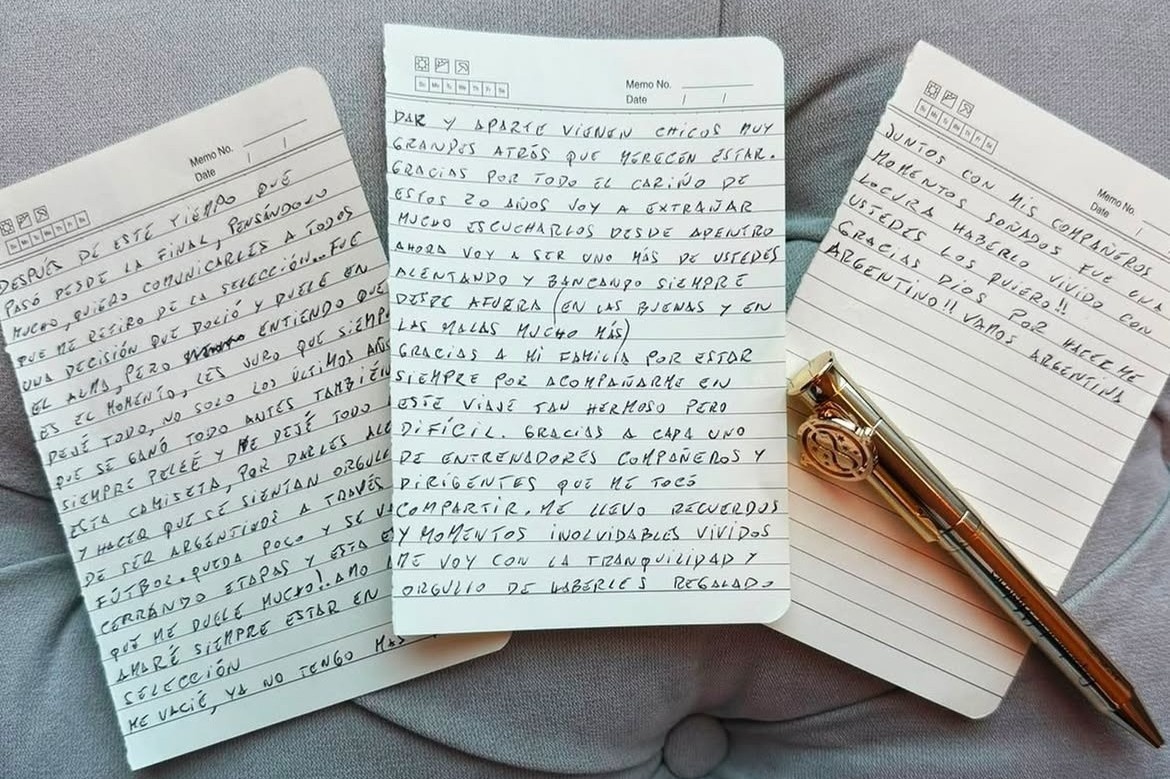 Memo No.
Date / /
Su Mo Tu We Th Fr Sa
DESPUÉS DE ESTE TIEMPO QUE
PASÓ DESDE LA FINAL, PENSÁNDOLO
MUCHO, QUIERO COMUNICARLES A TODOS
QUE ME RETIRO DE LA SELECCIÓN... FUE
UNA DECISIÓN QUE DOLIÓ Y DUELE EN
EL ALMA, PERO ENTIENDO QUE
ES EL MOMENTO, LES JURO QUE SIEMP
DEJÉ TODO, NO SOLO LOS ÚLTIMOS AÑOS
QUE SE GANÓ TODO ANTES TAMBIÉN
SIEMPRE PELEÉ Y ME DEJÉ TODO
ESTA CAMISETA, POR DARLES ALE
Y HACER QUE SE SIENTAN ORGULL
DE SER ARGENTINOS A TRAVÉS
FÚTBOL. QUEDA POCO Y SE VA
CERRANDO ETAPAS Y ESTA ES
QUE ME DUELE MUCHO!. AMO
AMARÉ SIEMPRE ESTAR EN
SELECCIÓN
ME VACIÉ, YA NO TENGO MÁS
Memo No.
Date / /
Su Mo Tu We Th Fr Sa
DAR Y APARTE VIENEN CHICOS MUY
GRANDES ATRÁS QUE MERECEN ESTAR.
GRACIAS POR TODO EL CARIÑO DE
ESTOS 20 AÑOS VOY A EXTRAÑAR
MUCHO ESCUCHARLOS DESDE ADENTRO
AHORA VOY A SER UNO MÁS DE USTEDES
ALENTANDO Y BANCANDO SIEMPRE
DESDE AFUERA (EN LAS BUENAS Y EN
LAS MALAS MUCHO MÁS)
GRACIAS A MI FAMILIA POR ESTAR
SIEMPRE POR ACOMPAÑARME EN
ESTE VIAJE TAN HERMOSO PERO
DIFÍCIL. GRACIAS A CADA UNO
DE ENTRENADORES COMPAÑEROS Y
DIRIGENTES QUE ME TOCÓ
COMPARTIR. ME LLEVO RECUERDOS
Y MOMENTOS INOLVIDABLES VIVIDOS
ME VOY CON LA TRANQUILIDAD Y
ORGULLO DE HABERLES REGALADO
Memo No.
Date /
Su Mo Tu We Th Fr Sa
JUNTOS CON MIS COMPAÑEROS
MOMENTOS SOÑADOS FUE UNA
LOCURA HABERLO VIVIDO CON
USTEDES LOS QUIERO!!
GRACIAS DIOS POR HACERME
ARGENTINO!! VAMOS ARGENTINA